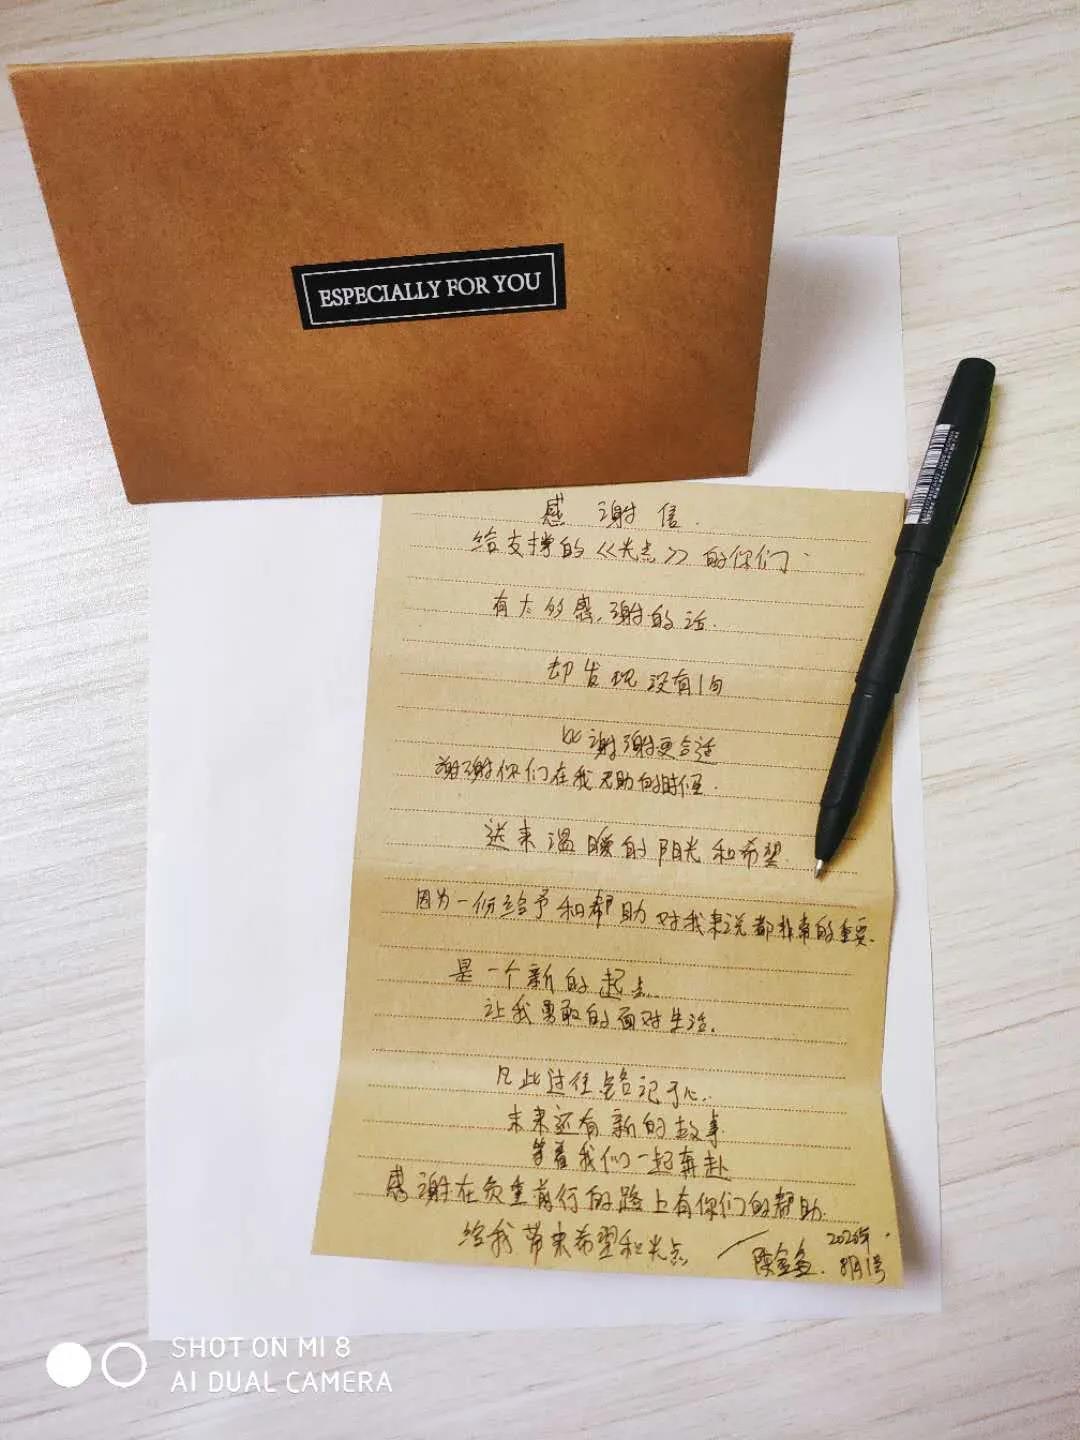 ESPECIALLY FOR YOU
感谢信.
给支撑的《光点》的你们.
有太多感谢的话.
却发现没有1句
比谢谢更合适
谢谢你们在我无助的时候.
送来温暖的阳光和希望.
因为一份给予和帮助对我来说都非常的重要.
是一个新的起点.
让我勇敢的面对生活.
凡此过往铭记于心.
未来还有新的故事
等着我们一起奔赴
感谢在负重前行的路上有你们的帮助.
给我带来希望和光点
2020年.
8月1号
SHOT ON MI 8
AI DUAL CAMERA